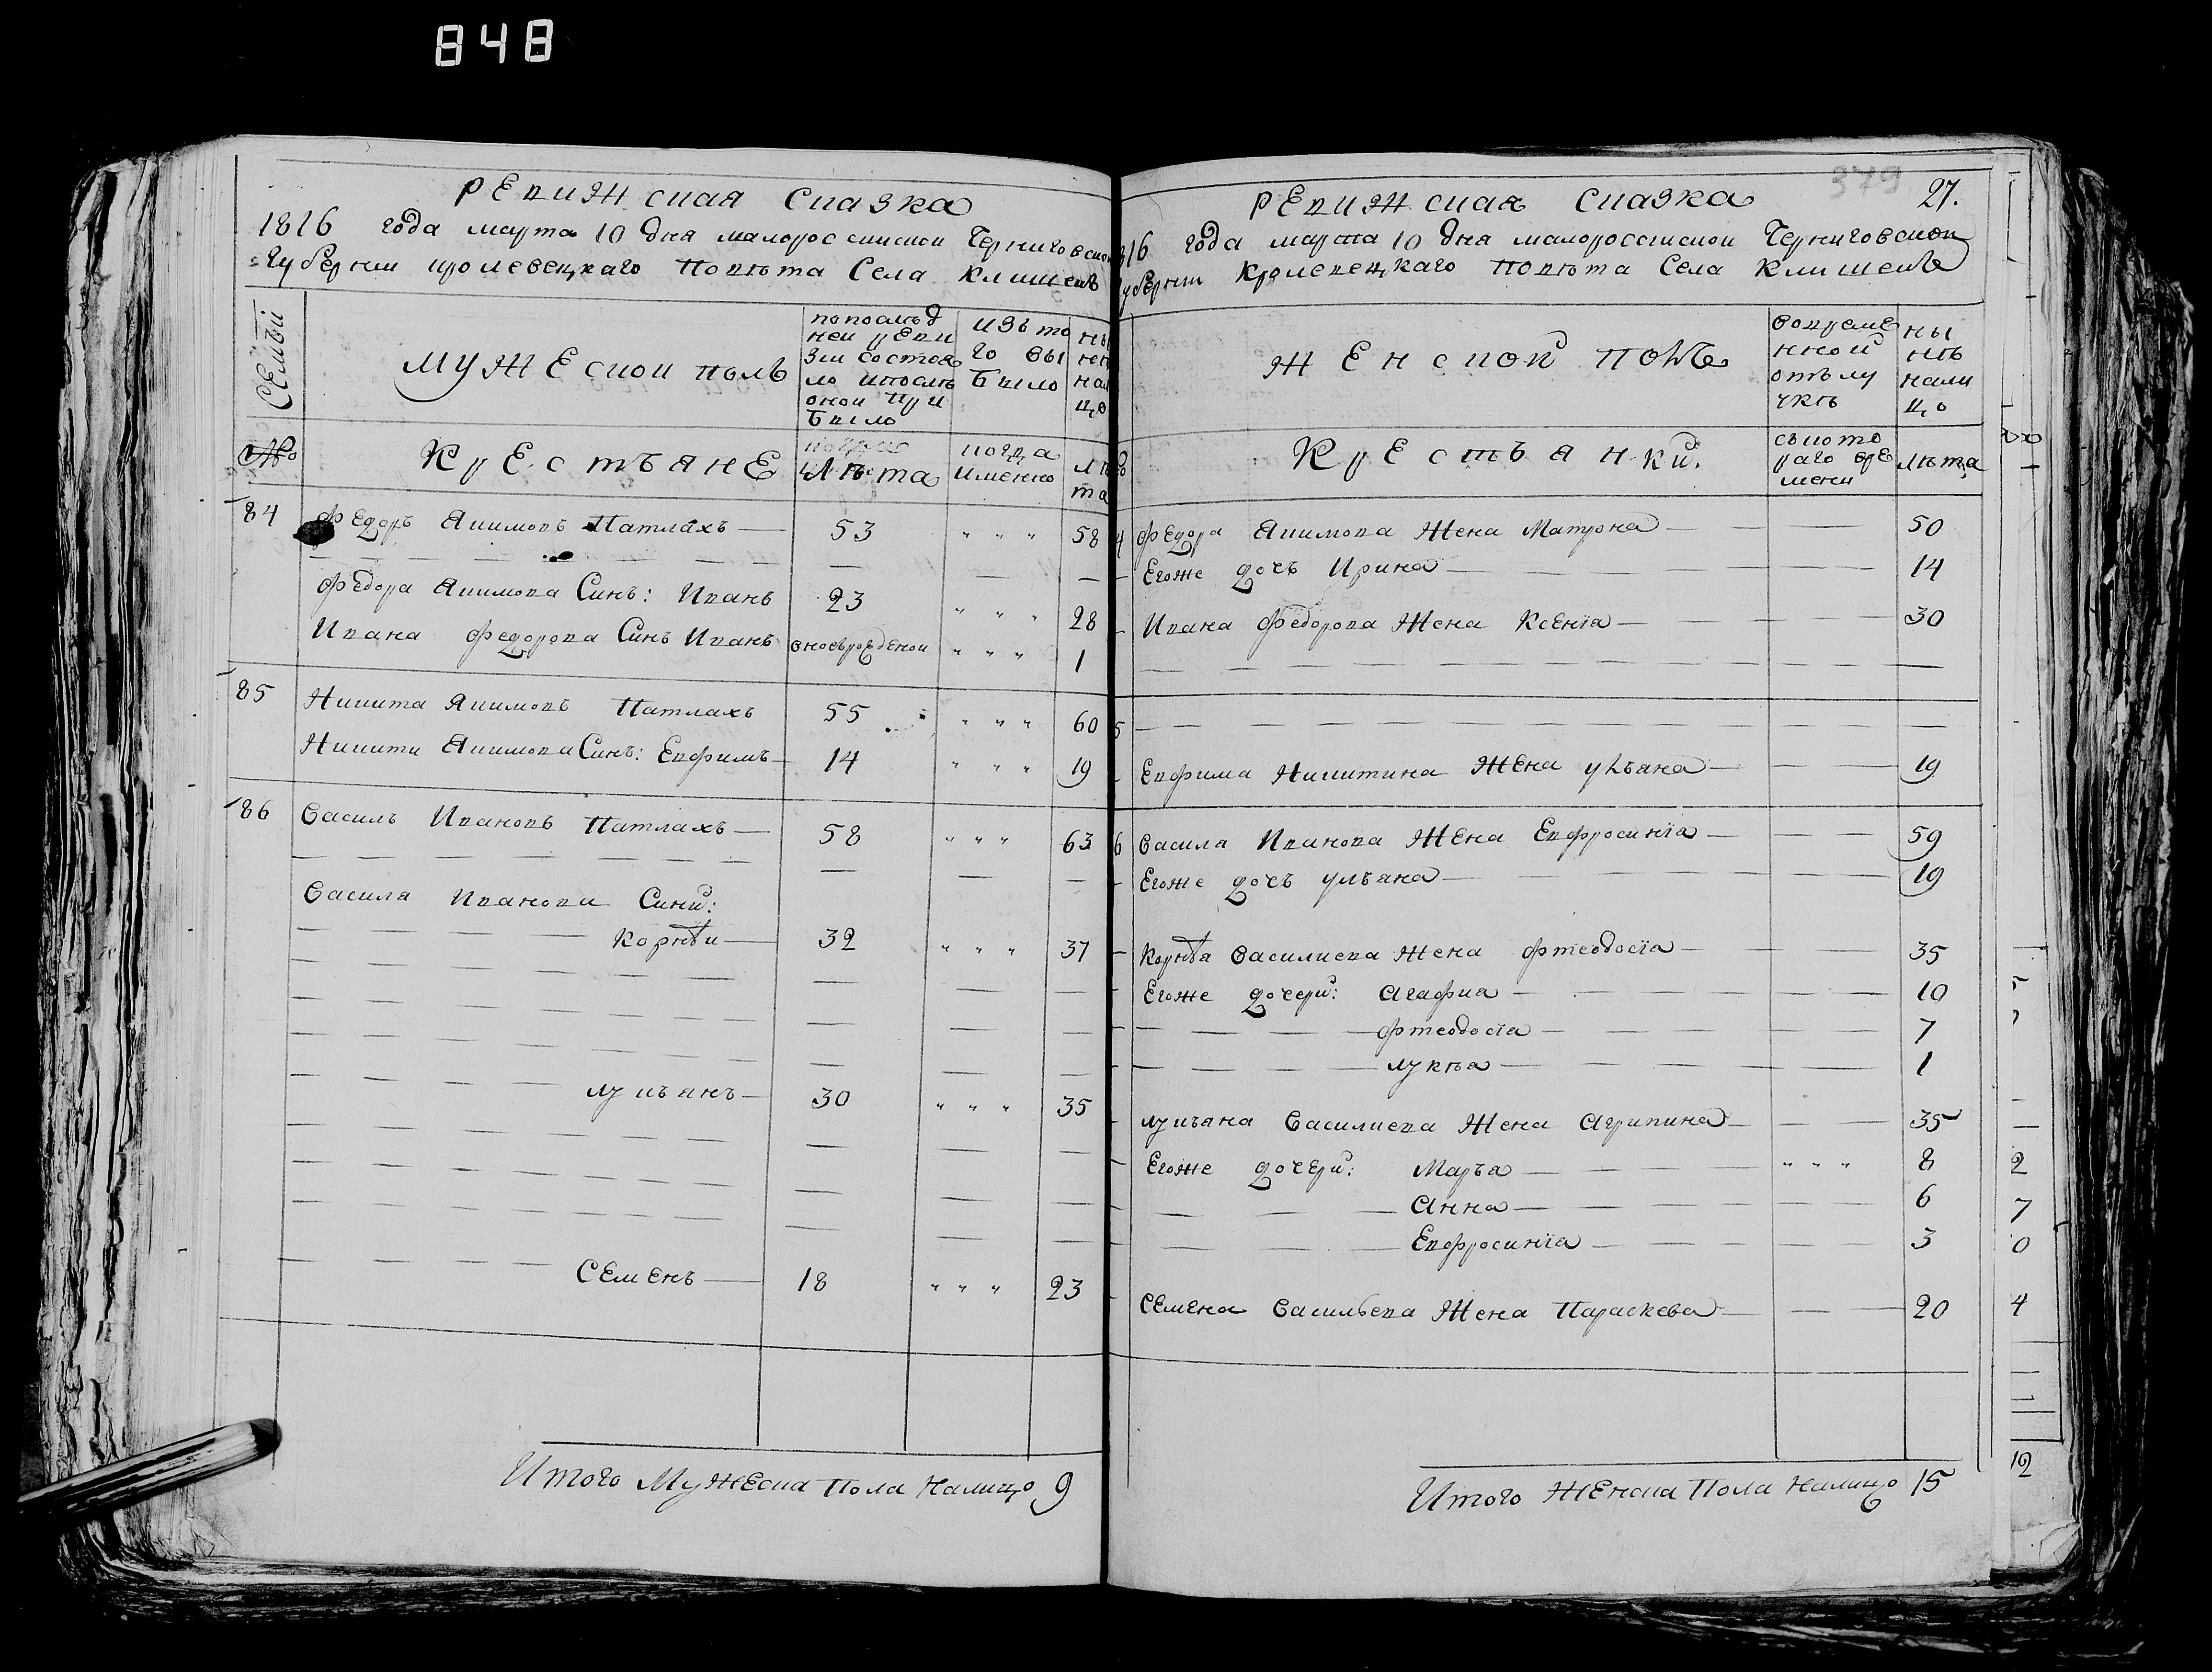 848
РЕВИЖСКАЯ СКАЗКА
1816 года марта 10 дня малороссииской Черниговской
Губернии кролевецкаго Повѣта Села Клишекъ
СЕМЬИ
МУЖЕСКОИ ПОЛЪ
попослѣд
неи реви
зии состоя
ло ипослѣ
оной При
было
изъ то
го вы
было
ны
не
нали
цо
№
КРЕСТЬЯНЕ
Лѣта
когда
именно
лѣ
та
84 Федоръ Якимовъ Патлахъ 53 " " " 58
Федора Якимова Синъ: Иванъ 23 " " " 28
Ивана Федорова Синъ Иванъ вноворожденой " " " 1
85 Никита Якимовъ Патлахъ 55 " " " 60
Никити Якимова Синъ: Евфимъ 14 " " " 19
86 Василь Ивановъ Патлахъ 58 " " " 63
Василя Иванова Сини:
Корнѣи 32 " " " 37
Лукъянъ 30 " " " 35
СЕменъ 18 " " " 23
Итого Мужеска Пола Налицо 9
379
27.
РЕВИЖСКАЯ СКАЗКА
816 года марта 10 дня малороссииской Черниговской
Губернии Кролевецкаго Повѣта Села Клишекъ
ЖЕНСКОЙ ПОЛЪ
вовреме
нной
отълу
чкѣ
ны
нѣ
нали
цо
КРЕСТЬЯНКИ.
съкото
раго вре
мени
лѣта
4 Федора Якимова Жена Матрона 50
Егоже дочь Ирина 14
Ивана Федорова Жена Ксенія 30
5
Евфима Никитина Жена Улъяна 19
6 Василя Иванова Жена Евфросинія 59
Егоже дочь улъяна 19
Корнѣя Василиева Жена Фтеодосія 35
Егоже дочери: Агафиа 10
Фтеодосія 7
лукѣя 1
лукъяна Василиева Жена Агрипина 35
Егоже дочери: Маръя " " " 8
Анна 6
Евфросинія 3
СЕмена Васильева Жена Параскева 20
Итого Женска Пола Налицо 15
2
7
0
4
12